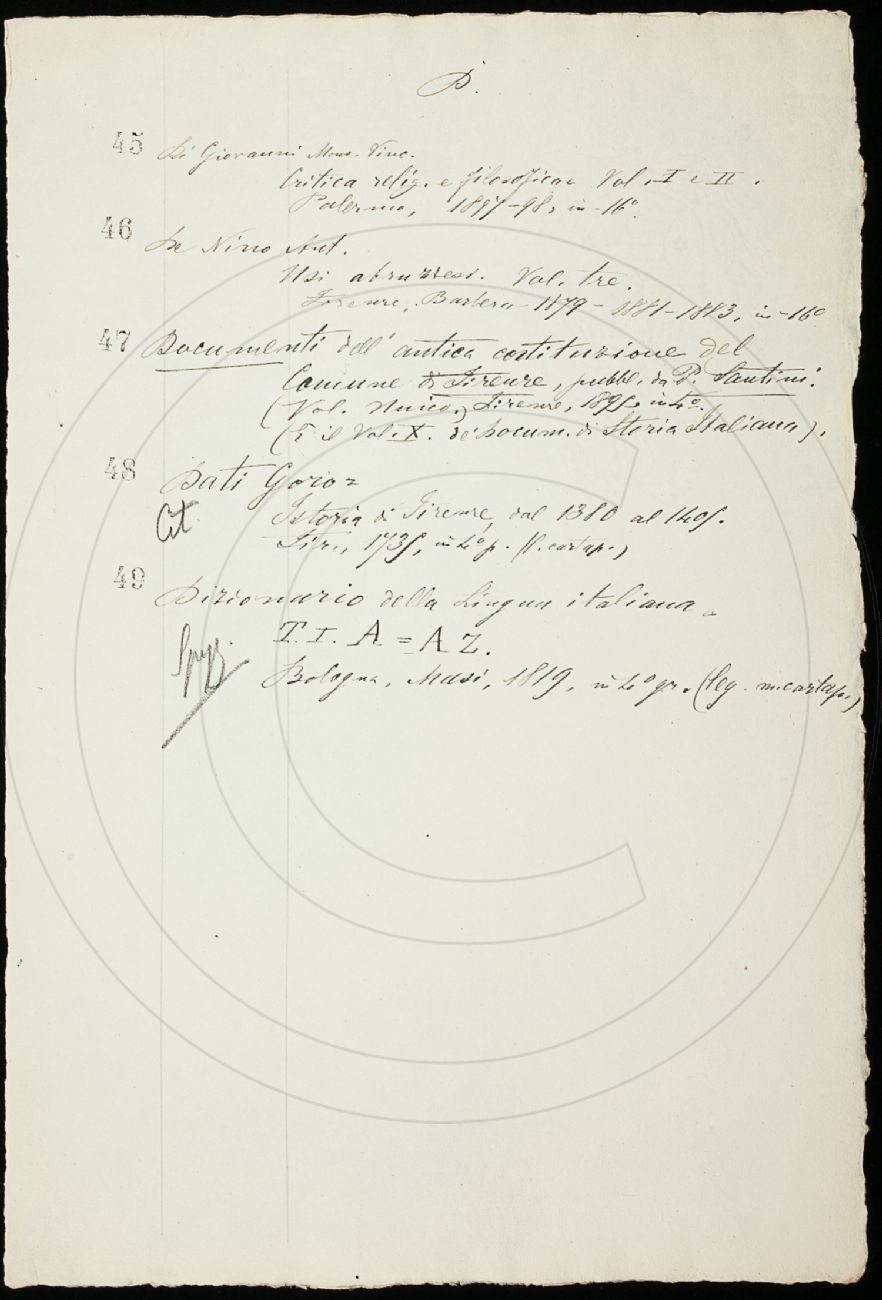 D.
45 Di Giovanni Mons. Vinc.
Critica relig. e filosofica Vol. I e II.
Palermo, 1897-98, in-16°.
46 De Nino Ant.
Usi abruzzesi. Vol. tre.
Firenze, Barbera 1879-1881-1883, in-16°
47 Documenti dell'antica costituzione del
Comune di Firenze, pubbl. da P. Santini.
(Vol. Unico,) Firenze, 1895, in 4°.
(È il Vol. X. de' Docum. di Storia Italiana).
48 Dati Goro =
Cit
Istoria di Firenze, dal 1380 al 1405.
Fir., 1735, in 4° p. (l. cartap.)
49 Dizionario della Lingua italiana =
T. I. A = AZ.
Bologna, Masi, 1819, in 4° gr. (leg. m. cartap.)